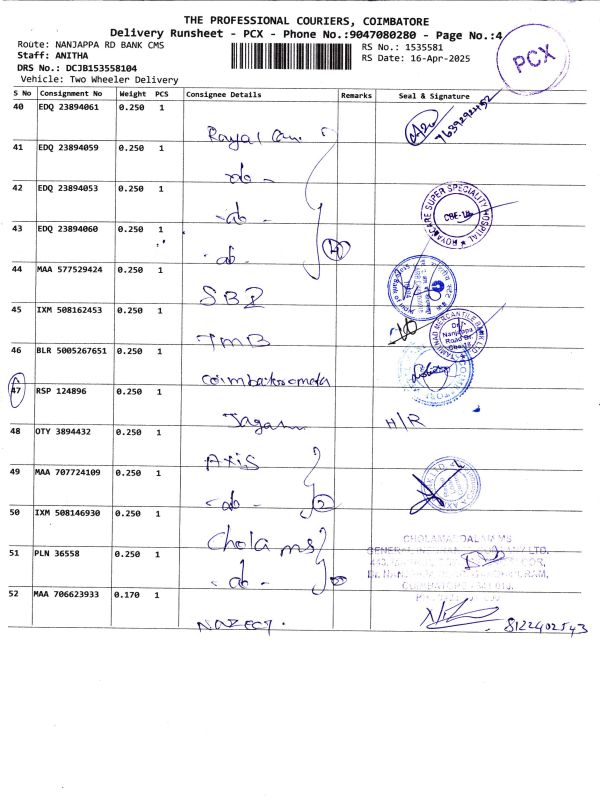 THE PROFESSIONAL COURIERS, COIMBATORE
Delivery Runsheet - PCX - Phone No.:9047080280 - Page No.:4
Route: NANJAPPA RD BANK CMS
RS No.: 1535581
Staff: ANITHA
RS Date: 16-Apr-2025
DRS No.: DCJB153558104
Vehicle: Two Wheeler Delivery
PCX
S No Consignment No Weight PCS Consignee Details Remarks Seal & Signature
40 EDQ 23894061 0.250 1 Royal
7639292452
41 EDQ 23894059 0.250 1 -do-
42 EDQ 23894053 0.250 1 -do-
ROYALCARE SUPER SPECIALITY HOSPITAL
CBE-18
43 EDQ 23894060 0.250 1 -do- 4
44 MAA 577529424 0.250 1 SBI
45 IXM 508162453 0.250 1 TMB
TAMILNAD MERCANTILE BANK LTD
Dr. Nanjappa Road Br.
46 BLR 5005267651 0.250 1
47 RSP 124896 0.250 1 H/R
48 OTY 3894432 0.250 1 AXIS
49 MAA 707724109 0.250 1 -do- 2
50 IXM 508146930 0.250 1 Chola ms
CHOLAMANDALAM MS
51 PLN 36558 0.250 1 -do-
52 MAA 706623933 0.170 1
8122402543